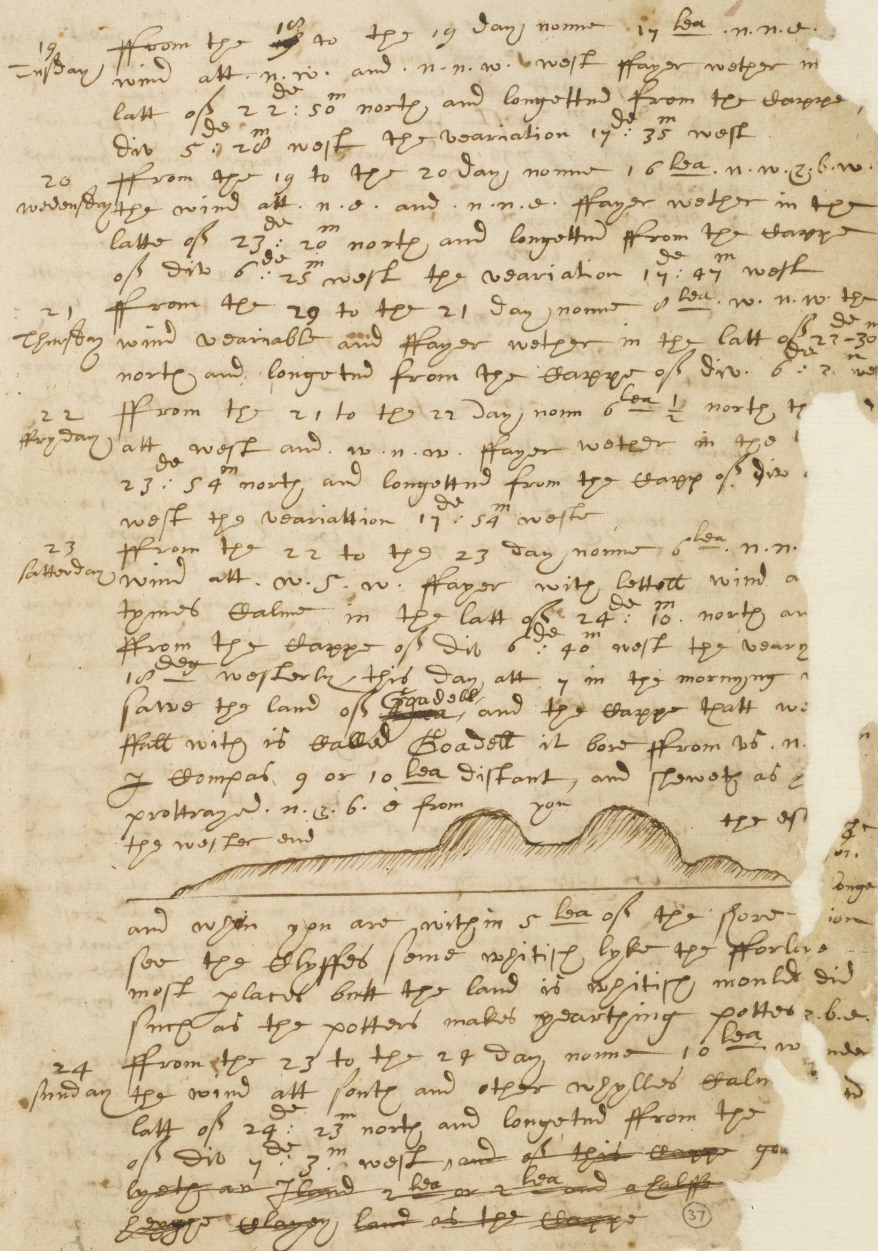 19 ffrom the 18 to the 19 day nonne 17 lea . n.n.e.
Tusday wind att . n.w. and . n.n.w. west ffayer wether in
latt off 22 de : 50 m north and longettud from the Cappe
div 5 de : 28 m west the veariation 17 de : 35 m west
20 ffrom the 19 to the 20 day nonne 16 lea . n.w. & b. w.
wedensday the wind att . n.e. and . n.n.e. ffayer wether in the
latte off 23 de : 20 m north and longettud ffrom the Cappe
off div 6 de : 25 m west the veariation 17 de : 47 m west
21 ffrom the 20 to the 21 day nonne 8 lea . w. n.w. the
Thursday wind veariable and ffayer wether in the latt off 23 de - 30 m
north and longetud from the Cappe off div. 6 de : 2 m we
22 ffrom the 21 to the 22 day nonn 6 lea 1/2 north th
ffryday att west and . w.n.w. ffayer wether in the
23 de : 54 m north and longettud from the Capp off div
west the veariattion 17 de : 54 m weste
23 ffrom the 22 to the 23 day nonne 6 lea . n.n.
Satterday wind att . w.S.w. ffayer with lettell wind a
tymes Calme in the latt off 24 de : 10 m north an
ffrom the Cappe off div 6 de : 40 m west the veary
18 deg westerly this day att 7 in the mornyng
sawe the land off Goadell and the Cappe thatt we
ffall with is Called Goadell it bore ffrom us . n.
Compas 9 or 10 lea distant, and sheweth as
prottrayed . n. & b. e from you
the est
the wester end
and when you are within 5 lea off the shore
see the Clyffes some whitish lyke the fforlan
most places butt the land is whitish mould did
such as the potters makes yearthing pottes
24 ffrom the 23 to the 24 day nonne 10 lea w
Sunday the wind att south and other whylles Calm
latt off 24 de : 23 m north and longetud ffrom the
off div 7 de : 3 m west and off this Cappe
lyeth an Iland 2 lea or 2 lea and a halffe
Clayey land as the Cappe
37